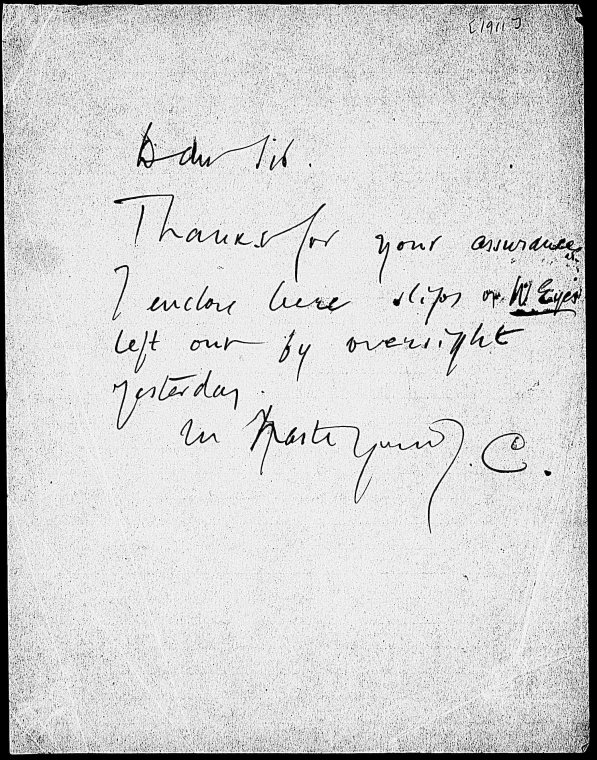 [1911]
Dear Sir.
Thanks for your assurances
I enclose here slips of W. Eyes
left out by oversight
yesterday.
In haste yours J. C.